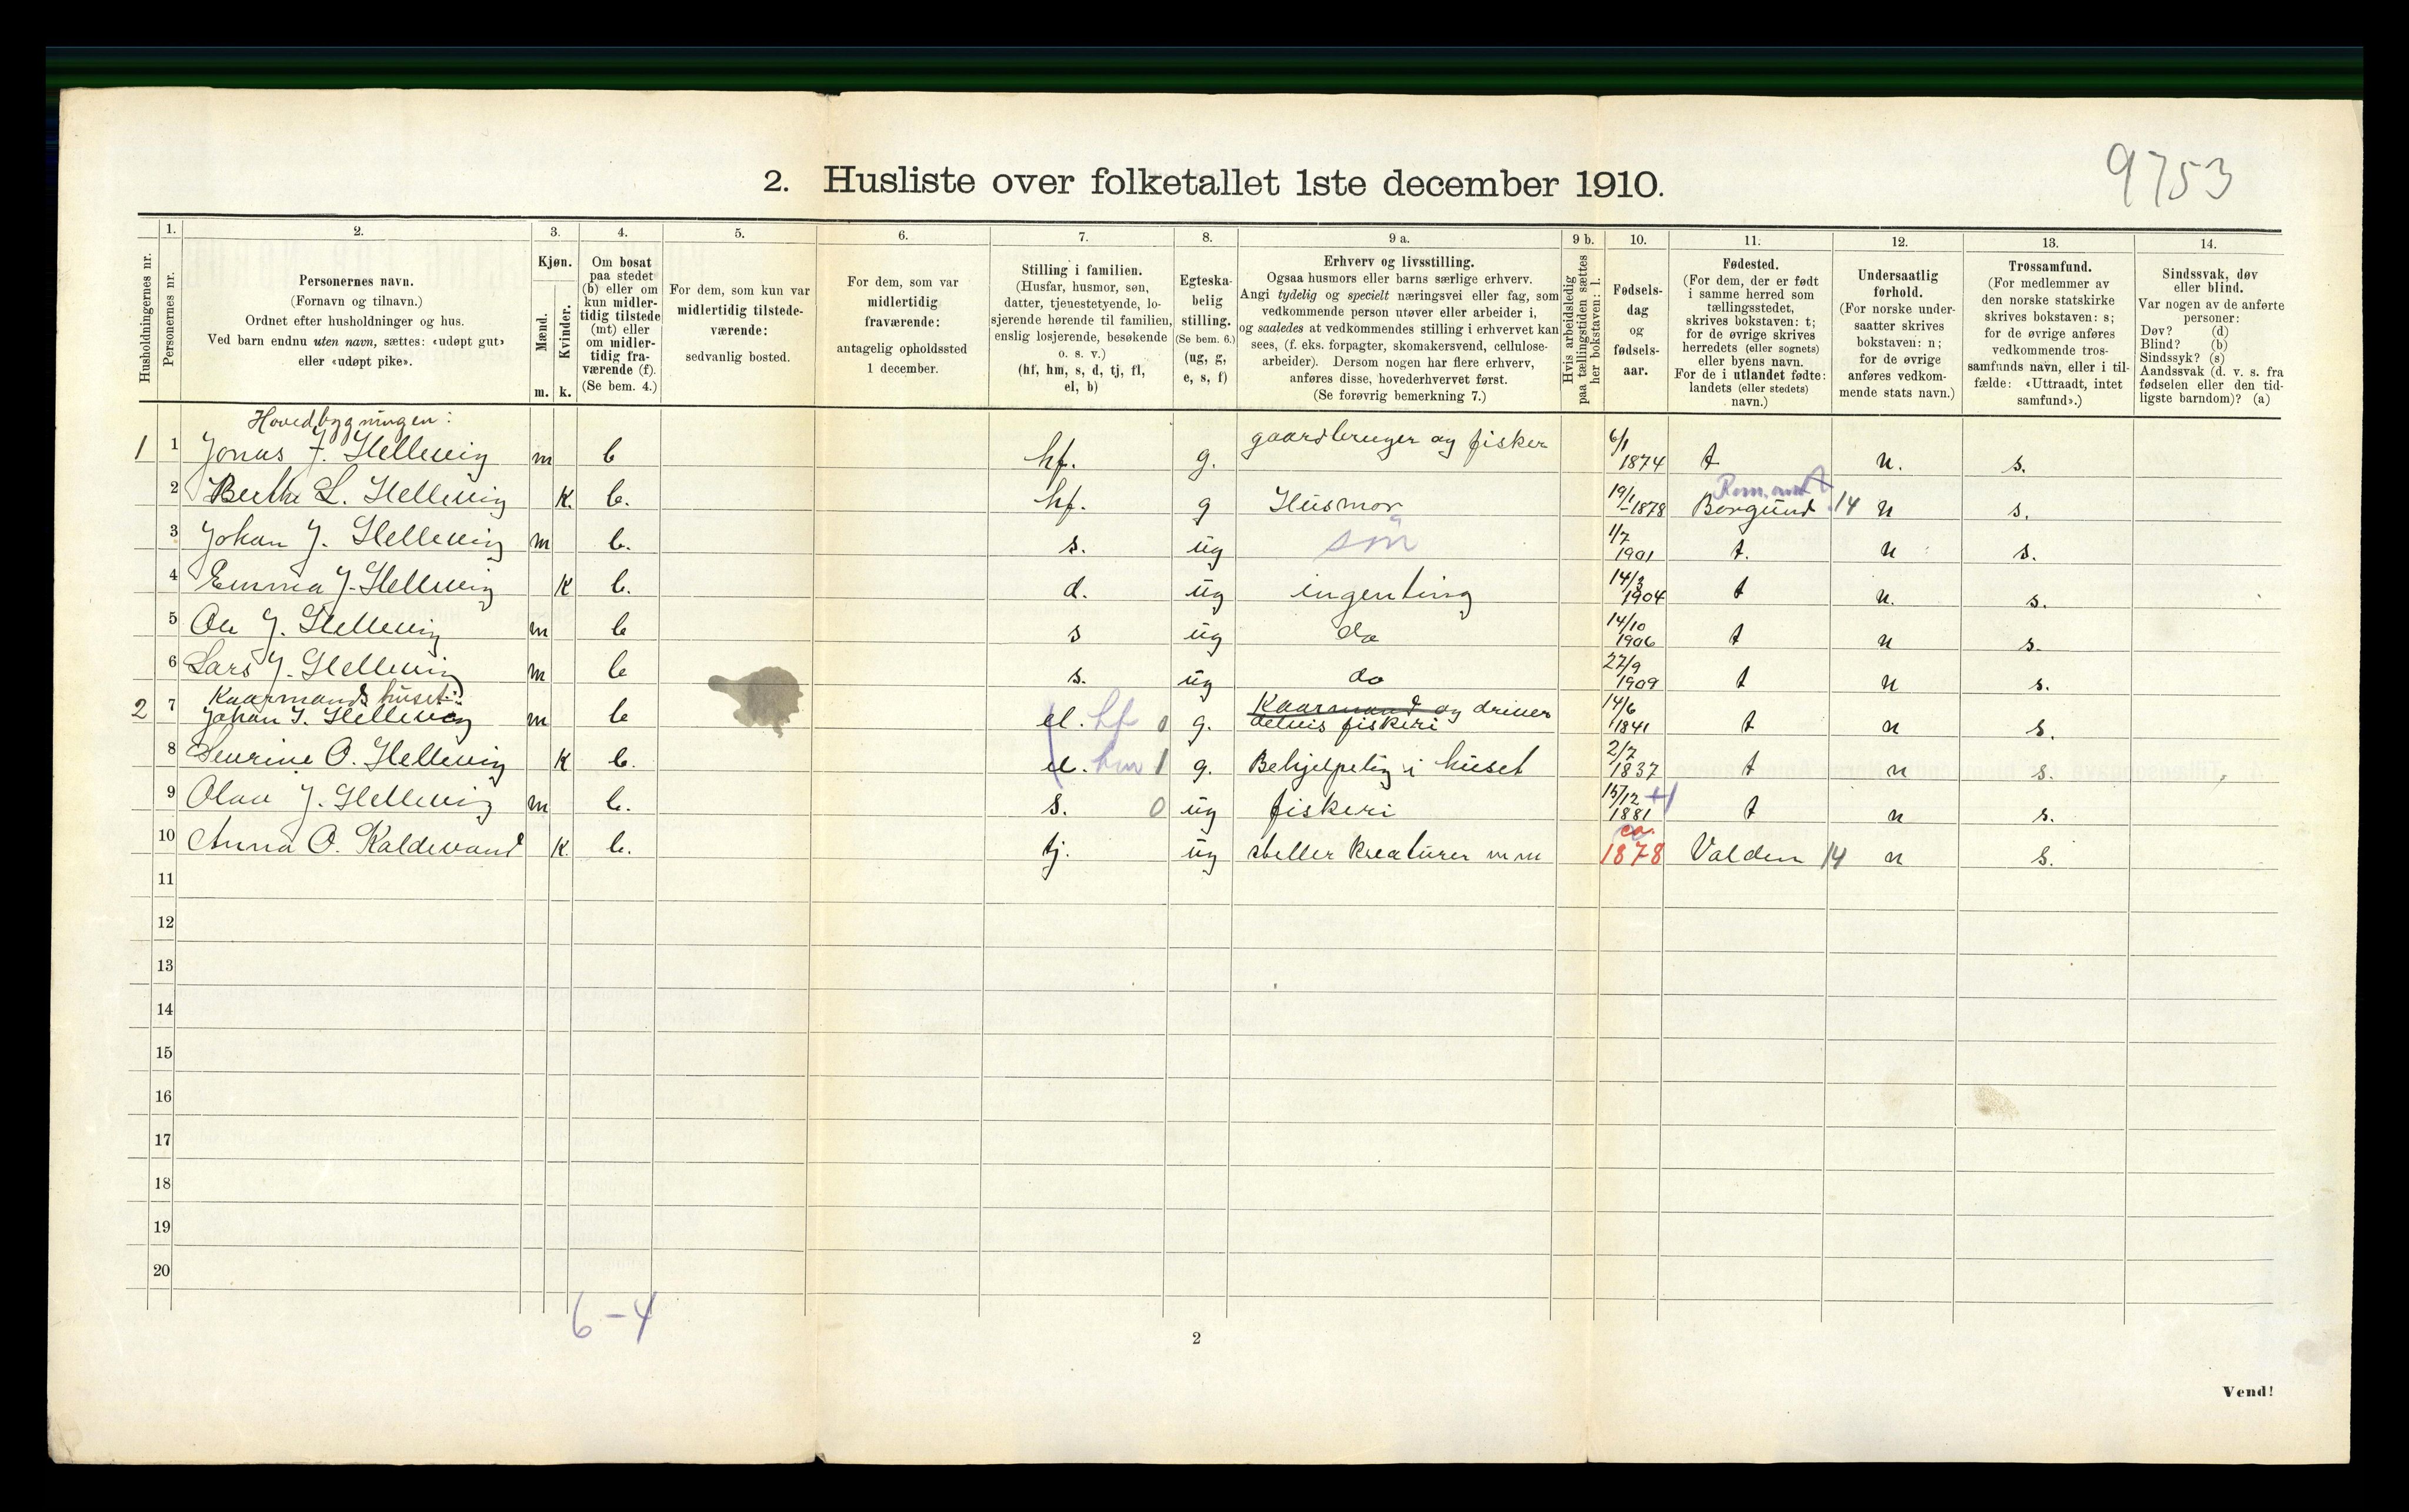 9753
2. Husliste over folketallet 1ste december 1910.
Husholdningernes nr.
1.
Personernes nr.
2.
Personernes navn.
(Fornavn og tilnavn.)
Ordnet efter husholdninger og hus.
Ved barn endnu uten navn, sættes: «udøpt gut»
eller «udøpt pike».
3.
Kjøn.
Mænd.
Kvinder.
m. k.
4.
Om bosat
paa stedet
(b) eller om
kun midler-
tidig tilstede
(mt) eller
om midler-
tidig fra-
værende (f).
(Se bem. 4.)
5.
For dem, som kun var
midlertidig tilstede-
værende:
sedvanlig bosted.
6.
For dem, som var
midlertidig
fraværende:
antagelig opholdssted
1 december.
7.
Stilling i familien.
(Husfar, husmor, søn,
datter, tjenestetyende, lo-
sjerende hørende til familien,
enslig losjerende, besøkende
o. s. v.)
(hf, hm, s, d, tj, fl,
el, b)
8.
Egteska-
belig
stilling.
(Se bem. 6.)
(ug, g,
e, s, f)
9 a.
Erhverv og livsstilling.
Ogsaa husmors eller barns særlige erhverv.
Angi tydelig og specielt næringsvei eller fag, som
vedkommende person utøver eller arbeider i,
og saaledes at vedkommendes stilling i erhvervet kan
sees, (f. eks. forpagter, skomakersvend, cellulose-
arbeider). Dersom nogen har flere erhverv,
anføres disse, hovederhvervet først.
(Se forøvrig bemerkning 7.)
9 b.
Hvis arbeidsledig
paa tællingstiden sættes
her bokstaven: l.
10.
Fødsels-
dag
og
fødsels-
aar.
11.
Fødested.
(For dem, der er født
i samme herred som
tællingsstedet,
skrives bokstaven: t;
for de øvrige skrives
herredets (eller sognets)
eller byens navn.
For de i utlandet fødte:
landets (eller stedets)
navn.)
12.
Undersaatlig
forhold.
(For norske under-
saatter skrives
bokstaven: n;
for de øvrige
anføres vedkom-
mende stats navn.)
13.
Trossamfund.
(For medlemmer av
den norske statskirke
skrives bokstaven: s;
for de øvrige anføres
vedkommende tros-
samfunds navn, eller i til-
fælde: «Uttraadt, intet
samfund».)
14.
Sindssvak, døv
eller blind.
Var nogen av de anførte
personer:
Døv? (d)
Blind? (b)
Sindssyk? (s)
Aandssvak (d. v. s. fra
fødselen eller den tid-
ligste barndom)? (a)
Hovedbygningen:
1 1 Jonas J. Hellevig m b hf. g. gaardbruger og fisker 6/1 1874 t n. s.
2 Berthe L. Hellevig K. b. hf. g Husmor 19/1 1878 Borgund 14 n s.
3 Johan J. Hellevig m b. s. ug søn 1/7 1901 t. n s.
4 Emma J. Hellevig K b. d. ug ingenting 14/3 1904 t n. s.
5 Ole J. Hellevig m b s ug do 14/10 1906 t n s.
6 Lars J. Hellevig m b s. ug do 27/9 1909 t n s.
Kaarmands huset:
2 7 Johan J. Hellevig m b el. hf 0 g. Kaarmand og driver delvis fiskeri 14/6 1841 t n s.
8 Sevrine O. Hellevig K b. el. hm 1 g. Behjelpelig i huset 2/7 1837 t n s.
9 Olav J. Hellevig m b. s. 0 ug fiskeri 15/12 1881 t n s.
10 Anna O. Kaldevand K. b. tj. ug steller Kreaturer m m ca. 1878 Valden 14 n s.
11
12
13
14
15
16
17
18
19
20
6 - 4
2
Vend!